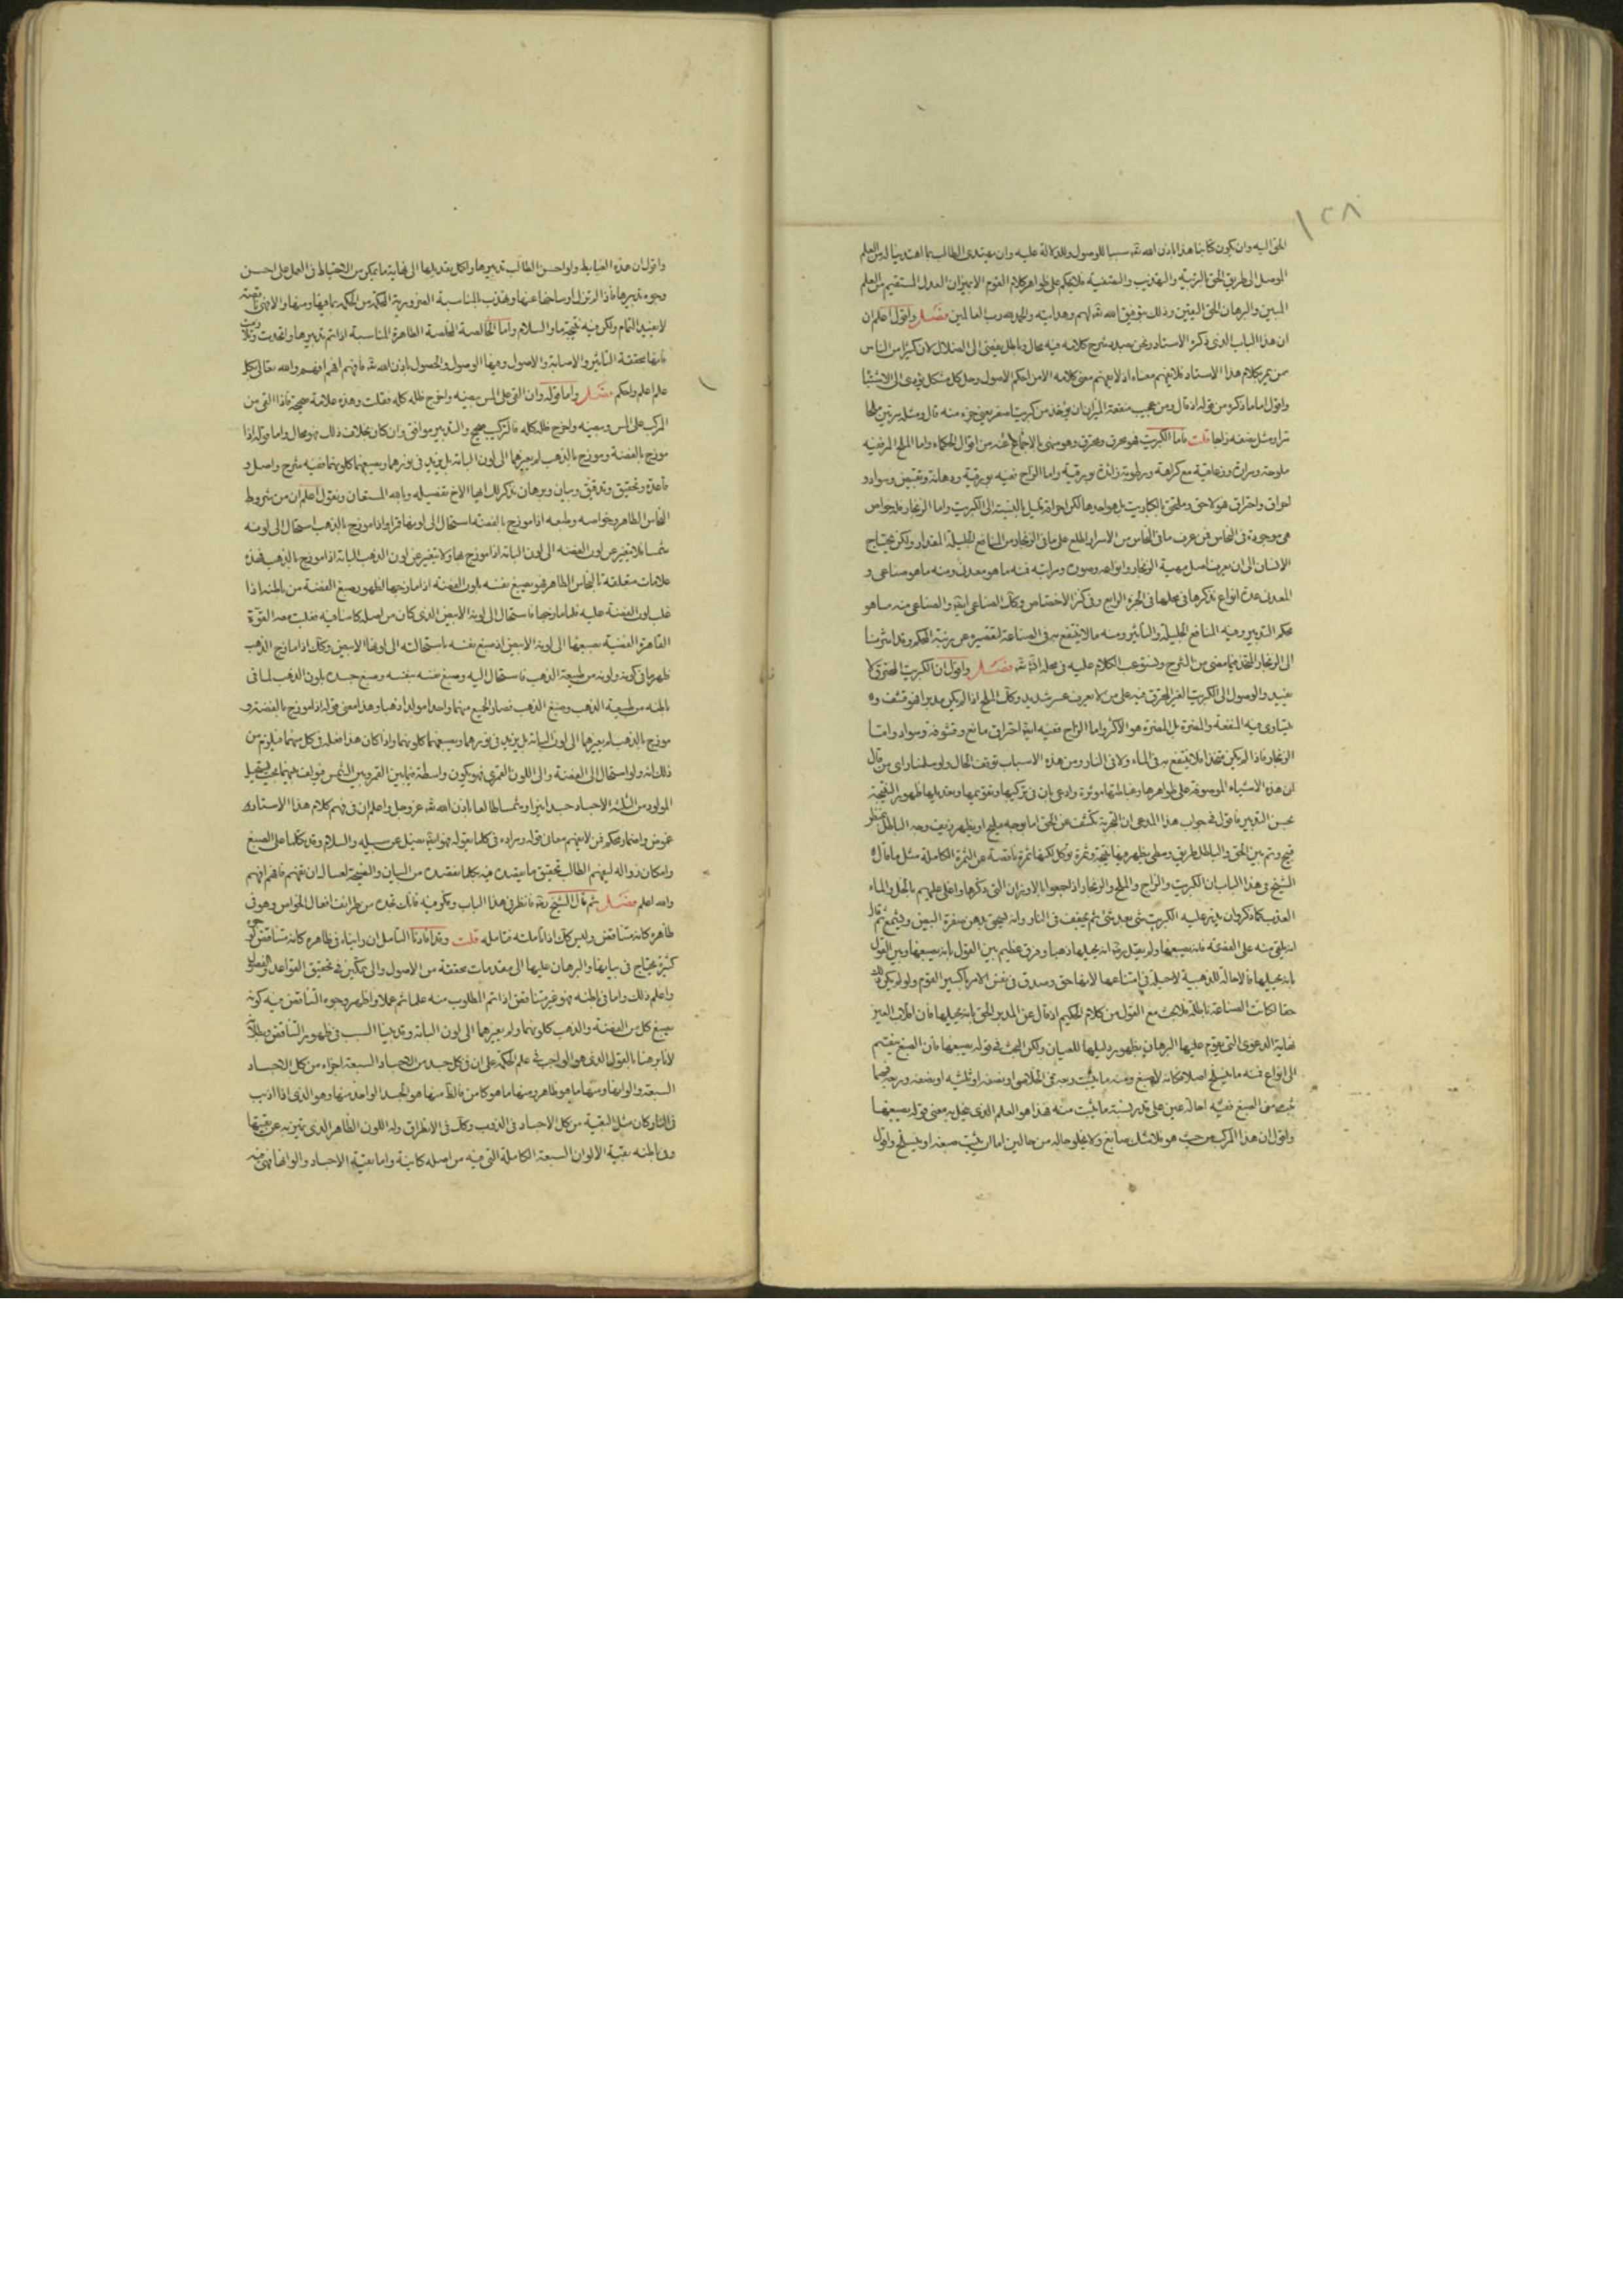 ١٢٨
الحق اليه وان يكون كتابنا هذا باذن الله تعـ سببا للوصول والدلالة عليه وان يهتدى الطالب بما اهتدينا له من العلم
الموصل الى طريق الحق بالتربية والتهذيب والتصفية فلا يحكم على ظواهر كلام القوم الا بميزان العدل المستقيم من العلم
المبين والبرهان الحق اليقين وذلك بتوفيق الله تعـ لهم وهدايته والحمد لله رب العالمين فصل واقول اعلم ان
ان هذا الباب الذى ذكره الاستاد ونحن بصدد شرح كلامه فيه محال وباطل يفضى الى الضلال لان كثيرا من الناس
من يمر بكلام هذا الاستاد فلا يفهم معناه اذ لا يفهم معنى كلامه الا من احكم الاصول وحل كل مشكل يؤدى الى الاشتباه
واقول اما ما ذكره من قوله اذ قال ومن عجيب منفعة الميزان ان يؤخذ من كبريت اصفر يعنى جزء منه قال ومثله مرتين ملحا
ومثل نصفه زاجا قلت فاما الكبريت فهو محرق ومحترق وهو منهى بالاجماع عنه من اقوال الحكماء واما الملح المر ففيه
ملوحة ومرارة وزعاقية مع كراهة ورطوبة زائدة وبورقية واما الزاج ففيه بورقية ودهانة وتقبيض وسواد و
احراق واحتراق هو لاحق وملحق بالكباريت بل هو احدها لكن احراقه قليل بالنسبة الى الكبريت واما الزنجار فله خواص
هى موجودة فى النحاس فمن عرف ما فى النحاس من الاسرار اطلع على ما فى الزنجار من المنافع الجليلة المقدار ولكن يحتاج
الانسان الى ان يعرف اصل مهية الزنجار وانواعه وصوره ومراتبه فمنه ما هو معدنى ومنه ما هو صناعى و
المعدنى عدة انواع نذكرها فى محلها فى الجزء الرابع وفى كنز الاختصاص وكذلك الصناعى ايضا والصناعى منه ما هو
محكم التدبير وفيه المنافع الجليلة والتأثير ومنه ما لا ينتفع به فى الصناعة لتقصيره عن مرتبة الحكم وقد اشرنا
الى الزنجار المتخذ فيما مضى من الشرح ونستوعب الكلام عليه فى محله انشاء الله فصل واقول ان الكبريت المحترق لا
يفيد والوصول الى الكبريت الغير المحترق فيه على من لا يعرف عسر شديد وكذلك الملح اذا لم يكن مدبرا فهو قشف و
يتساوى فيه المنفعة والمضرة بل المضرة هو الاكثر واما الزاج ففيه ايضا احتراق مانع وقشوفة وسواد واما
الزنجار فاذا لم يكن متخذا فلا ينتفع به فى الماء ولا فى النار ومن هذه الاسباب توقف الحال ولو سلمنا راى من قال
ان هذه الاشياء الموصوفة على ظواهرها وغباطتها موثرة وادعى بان فى تركيبها وتقويمها وتعديلها ظهور النتيجة
بحسن التدبير فاقول فى جواب هذا المدعى ان التجربة تكشف عن الحق اما بوجه مليح او يظهر زيف وجه الباطل بمنظر
قبيح وثم بين الحق والباطل طريق وسطى يظهر فيها نتيجة وثمرة توكل لكنها ثمرة ناقصة عن الثمرة الكاملة مثل ما قال
الشيخ فى هذا الباب ان الكبريت والزاج والملح والزنجار اذا جمعوا بالاوزان التى ذكرها واغلى عليهم بالخل والماء
العذب كما ذكر وان يدبر عليه الكبريت شى بعد شئ ثم يجفف فى النار وانه يسحق بدهن صفرة البيض ويشمع ثم قال
انه يلقى منه على الفضة فانه يصبغها ولم يقل رحمه الله انه يحيلها ذهبا وفرق عظيم بين القول بانه يصبغها وبين القول
بانه يحيلها فالاحالة للذهبية لا حيلة فى امتناعها لانها حق وصدق فى نفس الامر باكسير القوم ولو لم يكن ذلك
حقا لكانت الصناعة باطلة فلا بحث مع القول من كلام الحكيم اذ قال عن المدبر الحق بانه يحيلها فان انقلاب العين
نهاية الدعوى التى يقوم عليها البرهان بظهور دليلها للعيان ولكن البحث فى قوله يصبغها فان الصبغ ينقسم
الى انواع فمنه ما ينسلخ اصلا فكانه لا صبغ ومنه ما يثبت وجه فى الخلاص او نصفه او ثلثيه او ضعفه وربعه فهما
يخص من الصبغ ففيه احالة عين على قدر نسبة ما يثبت منه فهذا هو العلم الذى ينحل به معنى قوله يصبغها
واقول ان هذا المركب من حيث هو فلا شك صابغ ولا يخلو حاله من حالين اما ان يثبت صبغه او ينسلخ واقول
واقول ان هذه الضابط ولو احسن الطالب تدبيرها واكمل تعديلها الى نهاية ما يمكن من الاحتياط فى العمل على احسن
وجوه تدبيرها فاذا لم تزل اوساخها عنها وتهذب المناسبة الضرورية الحكمة من الحكمة بما فيها ومنها والا فهى ناقصة
لا تفيد التمام ولكن فيه نتيجة ما والسلام واما الخالصة المخلصة الطاهرة المناسبة اذا تم تدبيرها واتحدت وتلازمت
فانها محققة التاثير والاصابة والاصول وفيها الوصول والحصول باذن الله تعـ فافهم افهم افهم والله تعالى بكل
علم اعلم واحكم فصل واما قوله وان القى على المس يعينه واخرج ظله كله فقلت وهذه علامة صحيحة فاذا القى من
المركب على المس ويعينه واخرج ظله كله فالتركيب صحيح والتدبير موافق وان كان بخلاف ذلك فهو محال واما قوله اذا
موزج بالفضة وموزج بالذهب لم يغيرهما الى لون البتة بل يزيد فى نورهما ويصبغهما كلونهما ففيه شرح واصل و
قاعدة وتحقيق وتدقيق وبيان وبرهان نذكر لك ايها الاخ تفصيله وبالله المستعان ونقول اعلم ان من شروط
النحاس الطاهر وخواصه وطبعه اذا موزج بالفضة استحال الى لونها قمرا واذا موزج بالذهب استحال الى لونه
شمسا فلا تتغير عن لون الفضة الى لون البتة اذا موزج بها ولا يتغير عن لون الذهب البتة اذا موزج بالذهب فهذه
علامات متعلقة بالنحاس الطاهر فهو يصبغ نفسه بلون الفضة اذا مازجها لظهور صبغ الفضة من باطنه اذا
غلب لون الفضة عليه فلما مازجها فاستحال الى لونه الابيض الذى كان من اصله كامنا فيه فغلبت معه القوة
القاهرة الفضية بصبغها الى لونه الابيض اذ صبغ نفسه باستحالته الى لونها الابيض وكذلك اذا مازج الذهب
ظهر ما فى كونه ولونه من طبيعة الذهب فاستحال اليه وصبغ نفسه بنفسه وصبغ جسده بلون الذهب لما فى
باطنه من طبيعة الذهب وصبغ الذهب فصار الجميع منهما واحدا مولدا ذهبا وهذا معنى قوله اذا موزج بالفضة و
موزج بالذهب لم يغيرهما الى لون البتة بل يزيد فى نورهما ويصبغهما كلونهما واذا كان هذا فعله فى كل منهما فيلزم من
ذلك انه ولو استحال الى الفضة والى اللون القمرى فهو يكون واسطة فيما بين القمر وبين الشمس فيولف بينهما بحيث يستحيل
المولود من الثلاثة الاجساد جسدا نيرا وشمسا طالعا باذن الله تعـ عز وجل واعلم ان فى فهم كلام هذا الاستاد
غموض واغماد محكم فمن لا يفهم معانى قوله ومراده فى كل ما يقوله فهو ايضا يضل عن سبيله والسلام وقد تكلمنا على الصبغ
وامكان زواله ليفهم الطالب تحقيق ما يقصد فيه بكل ما نقصده من البيان والنصيحة لعساه ان يفهم فافهم افهم
والله اعلم فصل ثم قال الشيخ رحمه الله فانظر فى هذا الباب وفكر فيه فانك تجده من طرائف افعال الخواص وهو فى
ظاهره كانه متناقض وليس كذلك اذا تأملته فتامله قلت وقد افادنا التأمل ان وايناه فى ظاهره كانه متناقض لوجوه
كثيرة يحتاج فى بيانها والبرهان عليها الى مقدمات محققة من الاصول والى تمكين فى تحقيق القواعد والفصول
واعلم ذلك واما فى باطنه فهو غير متناقض اذا تم المطلوب منه علما ثم عملا واظهر وجوه التناقض فيه كونه
يصبغ كل من الفضة والذهب كلونهما ولم يغيرهما الى لون البتة وقد بينا السبب فى ظهور التناقض وبطلانه
لانا برهنا بالقول الذى هو الواجب فى علم الحكمة على ان فى كل جسد من الاجساد السبعة اجزاء من كل الاجساد
السبعة والوانها ومنها ما هو ظاهر ومنها ما هو كامن فالظاهر منها هو الجسد الواحد منها وهو الذى اذا اذيب
فى النار كان مثل البقية من كل الاجساد فى الذوب وكذلك فى الانطراق وله اللون الظاهر الذى يتميز به عن بقيتها
وفى باطنه بقية الالوان السبعة الكاملة التى فيه من اصله كاينة واما بقية الاجساد والوانها فهى فيه